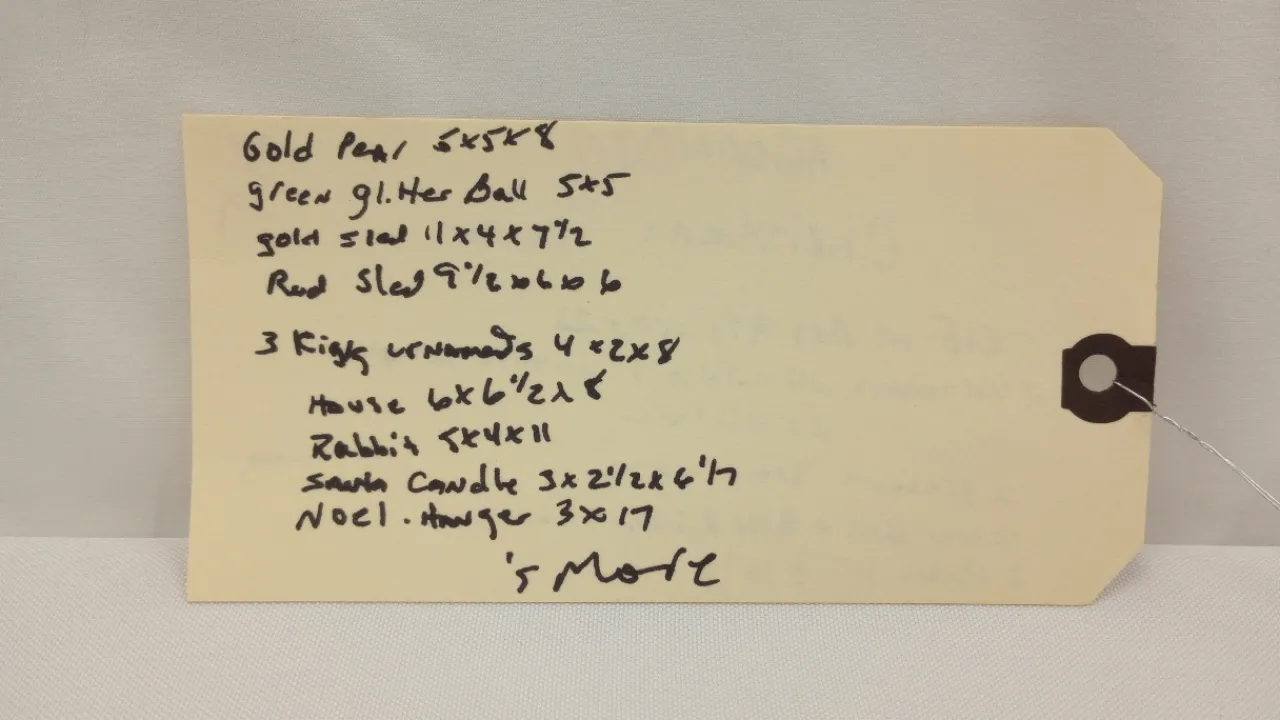 Gold Pear 5x5x8
green glitter Ball 5x5
gold sled 11x4x7 1/2
Red Sled 9 1/2 x6x6
3 ornaments 4x2x8
House 6x6 1/2 x 8
Rabbit 5x4x11
Santa Candle 3x2 1/2x
Noel. Hanger 3x17
More